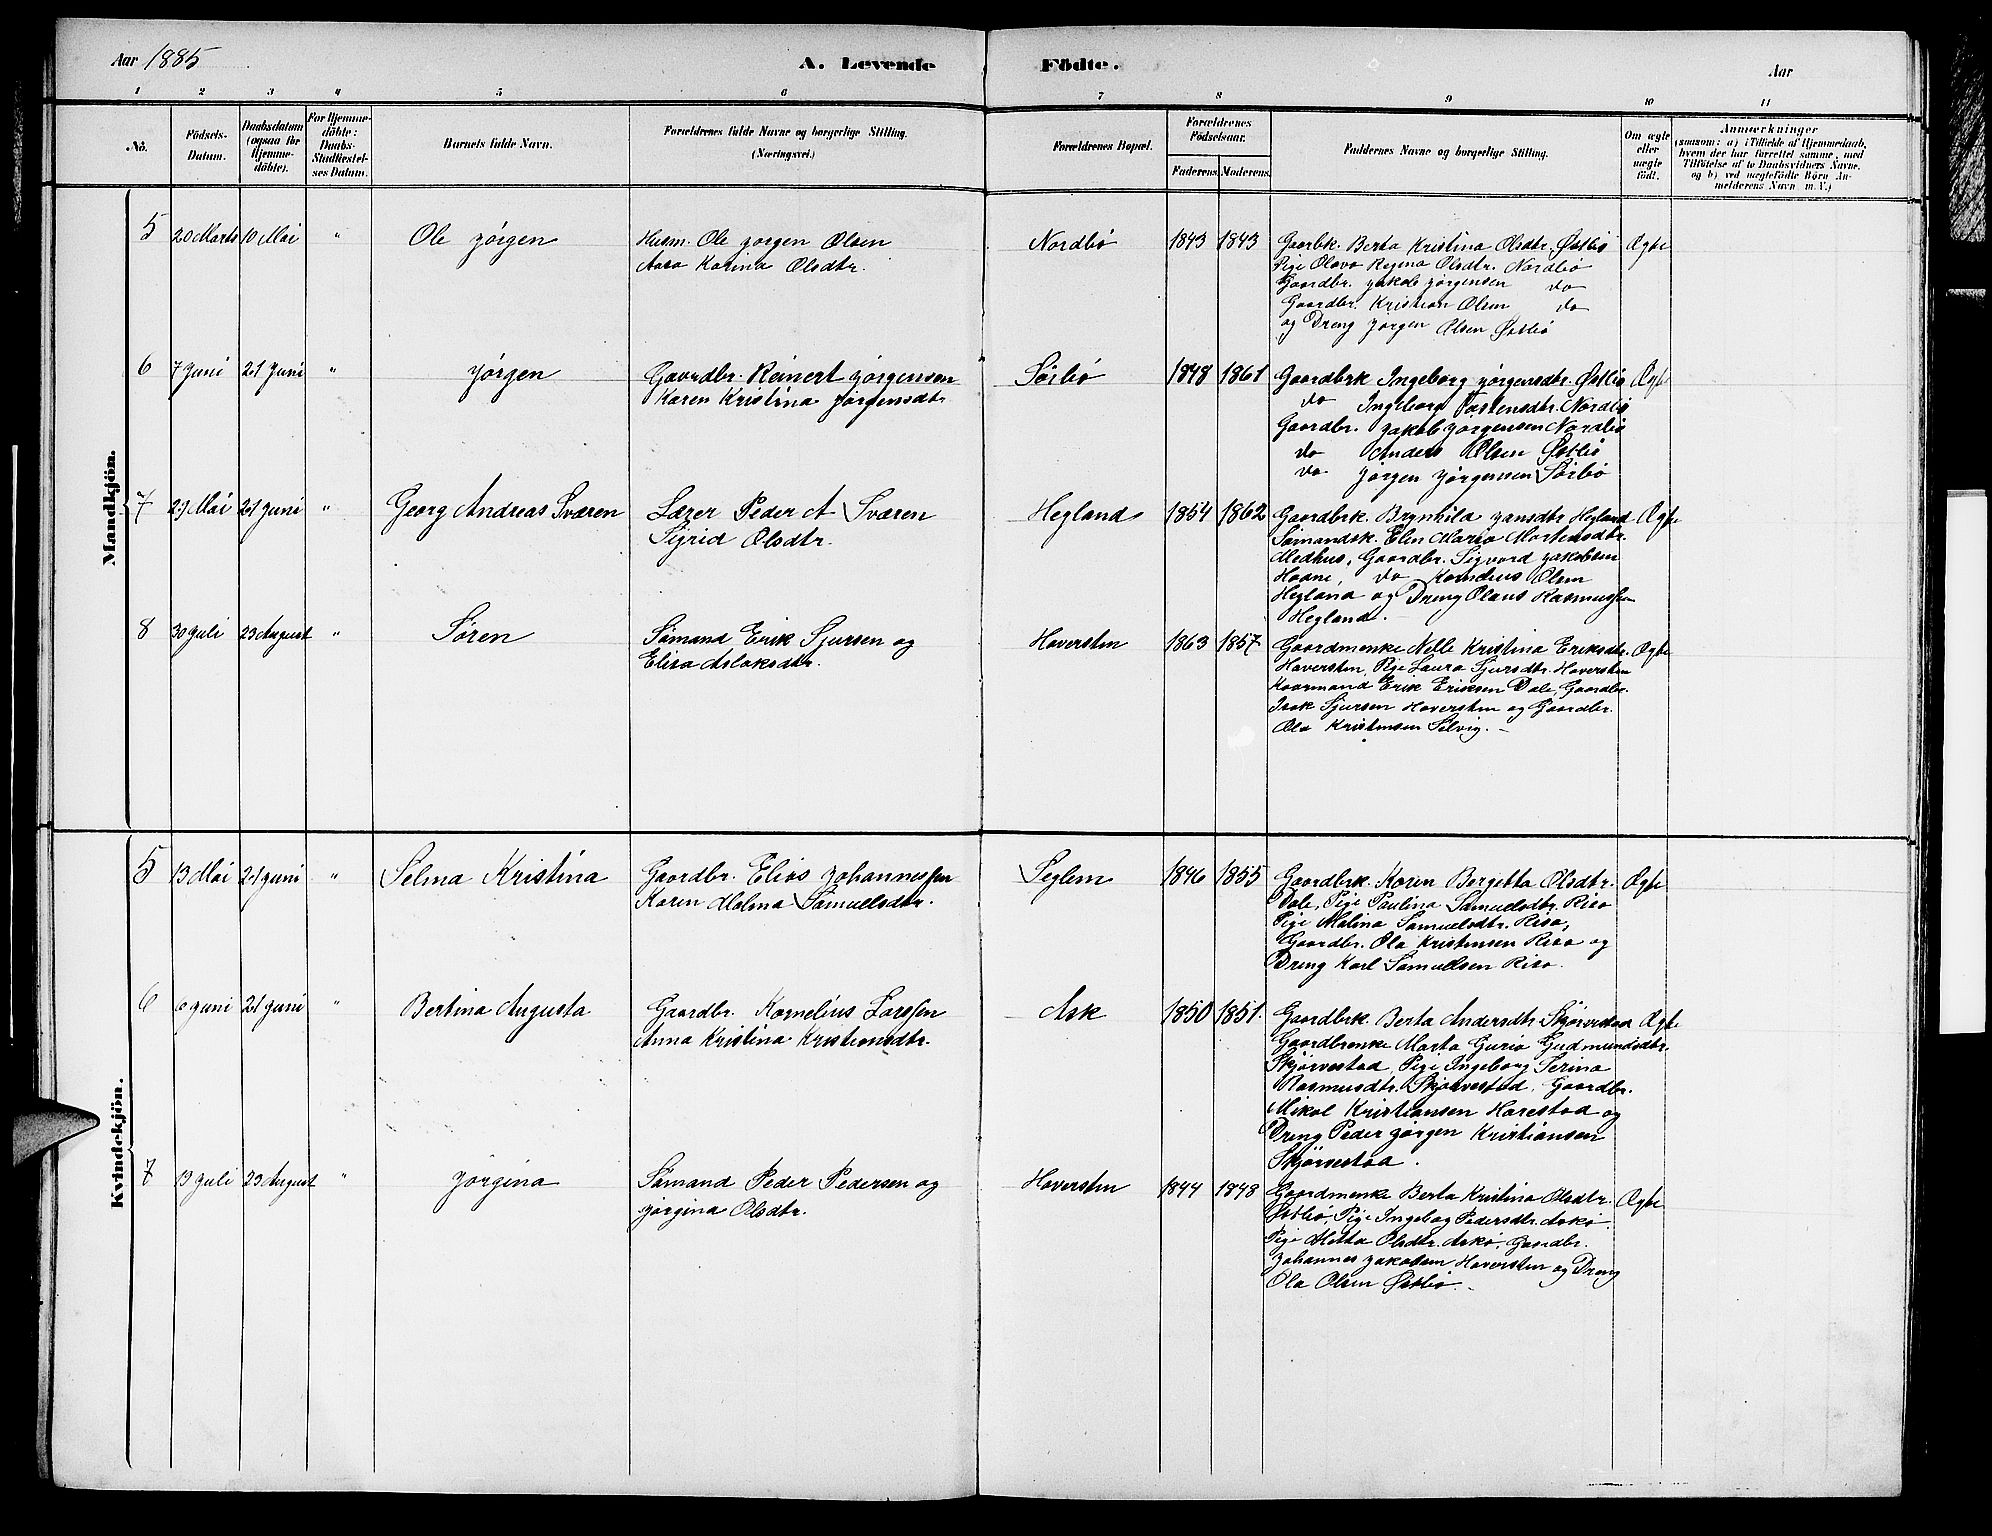 Aar 1885
A. Levende Födte.
Aar
1 2 3 4 5 6 7 8 9 10 11
No.
Födsels-Datum.
Daabsdatum (ogsaa for Hjemmedöbte).
For Hjemmedöbte: Daabs-Stadfæstelses Datum.
Barnets fulde Navn.
Forældrenes fulde Navne og borgerlige Stilling.
(Næringsvei.)
Forældrenes Bopæl.
Forældrenes Födselsaar.
Faderens. Moderens.
Faddernes Navne og borgerlige Stilling.
Om ægte eller uægte födt.
Anmærkninger
(saasom: a) i Tilfælde af Hjemmedaab,
hvem der har forrettet samme, med
Tilföielse af to Daabsvidners Navne,
og b) ved uægtefödte Börn An-
melderens Navn m. V.)
Mandkjön.
5 20 Marts 10 Mai " Ole Jørgen
Husm. Ole Jørgen Olsen
Karina Olsdtr.
Nordbø 1843 1843
Berta Kristina Olsdtr. Østbø
Pige Olava Regina Olsdtr. Nordbø
Gaardbr. Jakob Jørgensen do
Gaardbr. Kristian Olsen do
og Dreng Jørgen Olsen Østbø
Ægte
6 7 Juni 21 Juni " Jørgen
Gaardbr. Reinert Jørgensen
Karen Kristina Jørgensdtr
Sørbø 1848 1861
Gaardbrk Ingeborg Jørgensdtr. Østbø
do Ingeborg Tostensdtr. Nordbø
Gaardbr. Jakob Jørgensen Nordbø
do Anders Olsen Østbø
do Jørgen Jørgensen Sørbø
Ægte
7 29 Mai 21 Juni " Georg Andreas Sværen
Lærer Peder A Sværen
Sigrid Olsdtr.
Hegland 1854 1862
Gaardbrk. Brynhild Jansdtr Hegland
Sømandsk. Elen Maria Mortensdtr.
Medhus, Gaardbr. Sigvard Jakobsen
do Kornelius Olsen
Hegland og Dreng Olaus Rasmussen
Hegland.
Ægte
8 30 Juli 23 August " Søren
Sømand Erik Sjursen og
Elisa Aslaksdtr.
Haversten 1863 1857
Gaardmenke Nelle Kristina Eriksdtr.
Haversten, Pige Laura Sjursdtr. Haversten
Kaarmand Erik Eriksen Dale, Gaardbr.
Isak Sjursen Haversten og Gaardbr.
Ola Kristensen Selvig.
Ægte
Kvindekjön.
5 13 Mai 21 Juni " Selma Kristina
Gaardbr. Elias Johannessen
Karen Malena Samuelsdtr.
Seglem 1846 1855
Gaardbrk. Karen Bergetta Olsdtr.
Dale, Pige Paulina Samuelsdtr. Risa
Pige Malina Samuelsdtr. Risa,
Gaardbr. Ola Kristensen Risa og
Dreng Karl Samuelsen Risa.
Ægte
6 6 Juni 21 Juni " Bertina Augusta
Gaardbr. Kornelius Larssen
Anna Kristina Kristiansdtr.
Ask 1850 1851.
Gaardbrk. Berta Andersdtr Skjørvestad
Gaardbrenke Marta Guria Gudmundsdtr.
Skjørvestad, Pige Ingeborg Serina
Rasmusdtr. Skjørvestad, Gaardbr.
Mikal Kristiansen Harestad og
Dreng Peder Jørgen Kristiansen
Skjørvestad.
Ægte
7 19 Juli 23 August " Jørgina
Sømand Peder Pedersen og
Jørgina Olsdtr.
Haversten 1844 1848
Gaardmenke Berta Kristina Olsdtr.
Østbø, Pige Ingeborg Pedersdtr. Askø.
Pige Metta Olsdtr. Askø, Gaardbr.
Johannes Jakobsen Haversten og Dreng
Ola Olsen Østbø.
Ægte